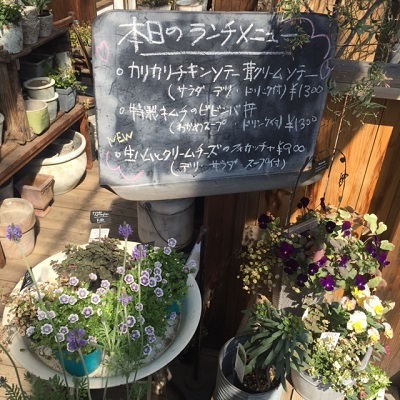 本日のランチメニュー
○カリカリチキンソテー 茸クリームソテー
(サラダ デリ ドリンク付) ¥1300
○特製キムチのビビンバ丼
(わかめスープ・ドリンク付) ¥1300
NEW
○生ハムとクリームチーズのフォカッチャ ¥900
(デリ・サラダ スープ付)